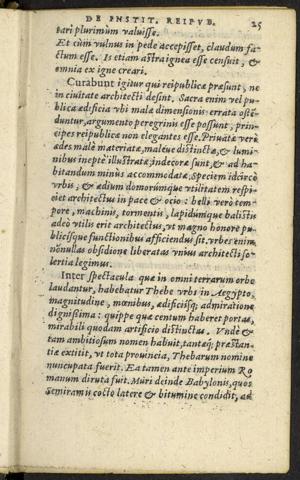 DE INSTIT. REIPVB. 25
tari plurimùm valuisse.
Et cùm vulnus in pede accepisset, claudum fa-
ctum esse. Is etiam astra ignea esse censuit, &
omnia ex igne creari.
Curabunt igitur qui reipublicæ præsunt, ne
in ciuitate architecti desint. Sacra enim vel pu
blica ædificia vbi malè dimensionis errata ostē
duntur, argumento peregrinis esse possunt, prin-
cipes reipublicæ non elegantes esse. Priuatæ verò
ædes malè materiatæ, maleue distinctæ, & lumi
nibus ineptè illustratæ, indecoræ sunt, & ad ha-
bitandum minùs accommodatæ. Speciem idcircò
vrbis, & ædium domorúmque vtilitatem respi-
ciet architectus in pace & ocio: belli verò tem-
pore, machinis, tormentis, lapidúmque balistis
adeò vtilis erit architectus, vt magno honore pu
blicísque functionibus afficiendus sit. vrbes enim
nonnullas obsidione liberatas vnius architecti so-
lertia legimus.
Inter spectacula quæ in omni terrarum orbe
laudantur, habebatur Thebe vrbs in Aegypto,
magnitudine, mœnibus, ædificiisq; admiratione
dignißima: quippe quæ centum haberet portas,
mirabili quodam artificio distinctas. Vnde &
tam ambitiosum nomen habuit, tantaq; præstan-
tia extitit, vt tota prouncia, Thebarum nomine
nuncupata fuerit. Ea tamen ante imperium Ro
manum diruta fuit. Muri deinde Babylonis, quos
Semiramis cocto latere & bitumine condidit, ad